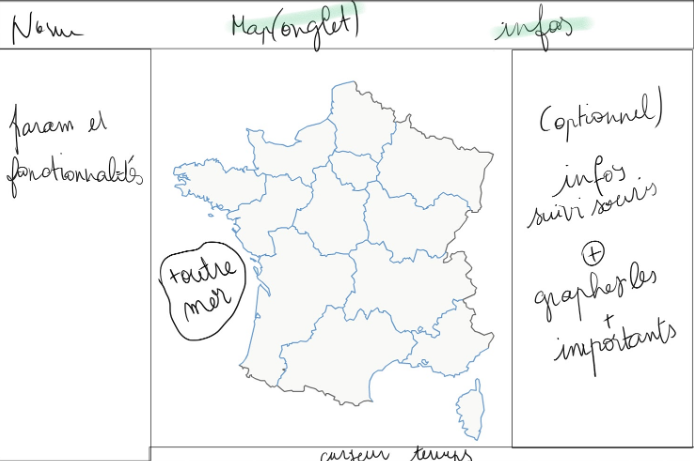 Nom
Map (onglet)
infos
param et
fonctionnalités
+ outre
mer
(optionnel)
infos
suivi souris
+
graphes les
+
importants
curseur temps